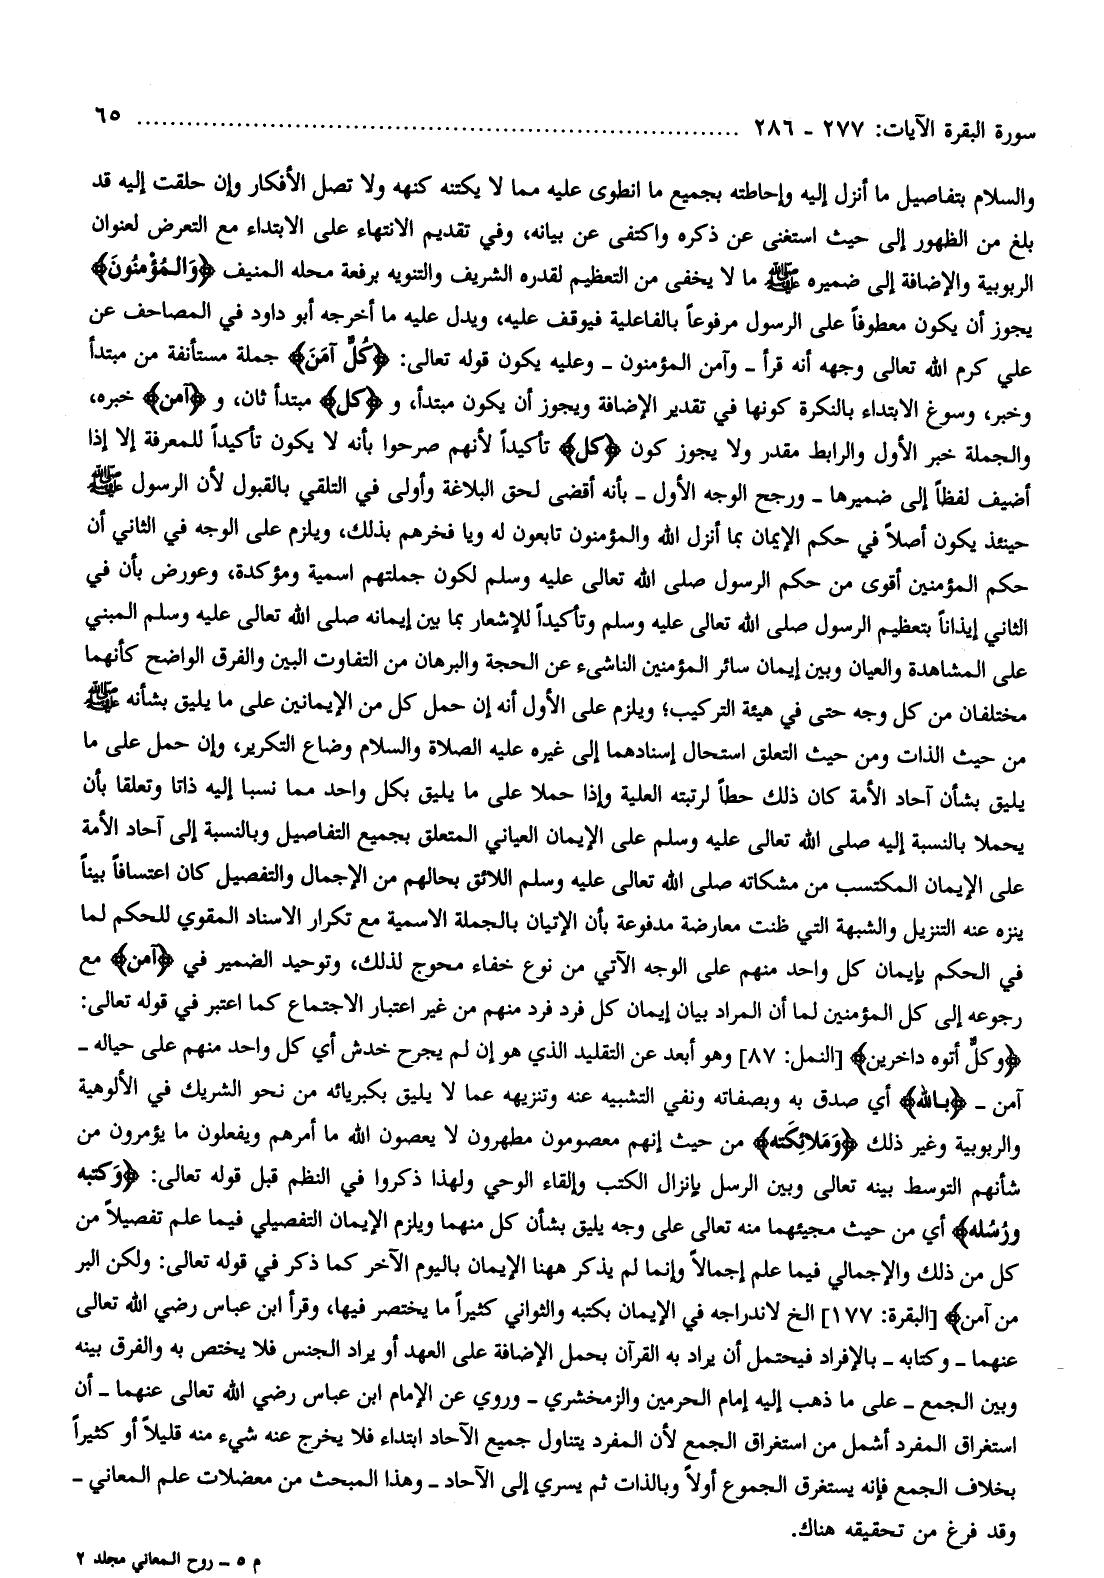 سورة البقرة الآيات: ٢٧٧ ـ ٢٨٦ ............................................................ ٦٥
والسلام بتفاصيل ما أنزل إليه وإحاطته بجميع ما انطوى عليه مما لا يكتنه كنهه ولا تصل الأفكار وإن حلقت إليه قد
بلغ من الظهور إلى حيث استغنى عن ذكره واكتفى عن بيانه، وفي تقديم الانتهاء على الابتداء مع التعرض لعنوان
الربوبية والإضافة إلى ضميره ﷺ ما لا يخفى من التعظيم لقدره الشريف والتنويه برفعة محله المنيف ﴿وَالمُؤْمنُونَ﴾
يجوز أن يكون معطوفاً على الرسول مرفوعاً بالفاعلية فيوقف عليه، ويدل عليه ما أخرجه أبو داود في المصاحف عن
علي كرم الله تعالى وجهه أنه قرأ ـ وآمن المؤمنون ـ وعليه يكون قوله تعالى: ﴿كُلٌّ آمَنَ﴾ جملة مستأنفة من مبتدأ
وخبر، وسوغ الابتداء بالنكرة كونها في تقدير الإضافة ويجوز أن يكون مبتدأ، و ﴿كل﴾ مبتدأ ثان، و ﴿آمن﴾ خبره،
والجملة خبر الأول والرابط مقدر ولا يجوز كون ﴿كل﴾ تأكيداً لأنهم صرحوا بأنه لا يكون تأكيداً للمعرفة إلا إذا
أضيف لفظاً إلى ضميرها ـ ورجح الوجه الأول ـ بأنه أقضى لحق البلاغة وأولى في التلقي بالقبول لأن الرسول ﷺ
حينئذ يكون أصلاً في حكم الإيمان بما أنزل الله والمؤمنون تابعون له ويا فخرهم بذلك، ويلزم على الوجه في الثاني أن
حكم المؤمنين أقوى من حكم الرسول صلى الله تعالى عليه وسلم لكون جملتهم اسمية ومؤكدة، وعورض بأن في
الثاني إيذاناً بتعظيم الرسول صلى الله تعالى عليه وسلم وتأكيداً للإشعار بما بين إيمانه صلى الله تعالى عليه وسلم المبني
على المشاهدة والعيان وبين إيمان سائر المؤمنين الناشىء عن الحجة والبرهان من التفاوت البين والفرق الواضح كأنهما
مختلفان من كل وجه حتى في هيئة التركيب؛ ويلزم على الأول أنه إن حمل كل من الإيمانين على ما يليق بشأنه ﷺ
من حيث الذات ومن حيث التعلق استحال إسنادهما إلى غيره عليه الصلاة والسلام وضاع التكرير، وإن حمل على ما
يليق بشأن آحاد الأمة كان ذلك حطاً لرتبته العلية وإذا حملا على ما يليق بكل واحد مما نسبا إليه ذاتا وتعلقا بأن
يحملا بالنسبة إليه صلى الله تعالى عليه وسلم على الإيمان العياني المتعلق بجميع التفاصيل وبالنسبة إلى آحاد الأمة
على الإيمان المكتسب من مشكاته صلى الله تعالى عليه وسلم اللائق بحالهم من الإجمال والتفصيل كان اعتسافاً بيناً
ينزه عنه التنزيل والشبهة التي ظنت معارضة مدفوعة بأن الإتيان بالجملة الاسمية مع تكرار الاسناد المقوي للحكم لما
في الحكم بإيمان كل واحد منهم على الوجه الآتي من نوع خفاء محوج لذلك، وتوحيد الضمير في ﴿آمن﴾ مع
رجوعه إلى كل المؤمنين لما أن المراد بيان إيمان كل فرد فرد منهم من غير اعتبار الاجتماع كما اعتبر في قوله تعالى:
﴿وكلٌّ أتوه داخرين﴾ [النمل: ٨٧] وهو أبعد عن التقليد الذي هو إن لم يجرح خدش أي كل واحد منهم على حياله ـ
آمن ـ ﴿بالله﴾ أي صدق به وبصفاته ونفي التشبيه عنه وتنزيهه عما لا يليق بكبريائه من نحو الشريك في الألوهية
والربوبية وغير ذلك ﴿وَمَلائِكَته﴾ من حيث إنهم معصومون مطهرون لا يعصون الله ما أمرهم ويفعلون ما يؤمرون من
شأنهم التوسط بينه تعالى وبين الرسل بإنزال الكتب وإلقاء الوحي ولهذا ذكروا في النظم قبل قوله تعالى: ﴿وَكتبه
ورُسُله﴾ أي من حيث مجيئهما منه تعالى على وجه يليق بشأن كل منهما ويلزم الإيمان التفصيلي فيما علم تفصيلاً من
كل من ذلك والإجمالي فيما علم إجمالاً وإنما لم يذكر ههنا الإيمان باليوم الآخر كما ذكر في قوله تعالى: ولكن البر
من آمن﴾ [البقرة: ١٧٧] الخ لاندراجه في الإيمان بكتبه والثواني كثيراً ما يختصر فيها، وقرأ ابن عباس رضي الله تعالى
عنهما ـ وكتابه ـ بالإفراد فيحتمل أن يراد به القرآن بحمل الإضافة على العهد أو يراد الجنس فلا يختص به والفرق بينه
وبين الجمع ـ على ما ذهب إليه إمام الحرمين والزمخشري ـ وروي عن الإمام ابن عباس رضي الله تعالى عنهما ـ أن
استغراق المفرد أشمل من استغراق الجمع لأن المفرد يتناول جميع الآحاد ابتداء فلا يخرج عنه شيء منه قليلاً أو كثيراً
بخلاف الجمع فإنه يستغرق الجموع أولاً وبالذات ثم يسري إلى الآحاد ـ وهذا المبحث من معضلات علم المعاني ـ
وقد فرغ من تحقيقه هناك.
م ٥ ـ روح المعاني مجلد ٢